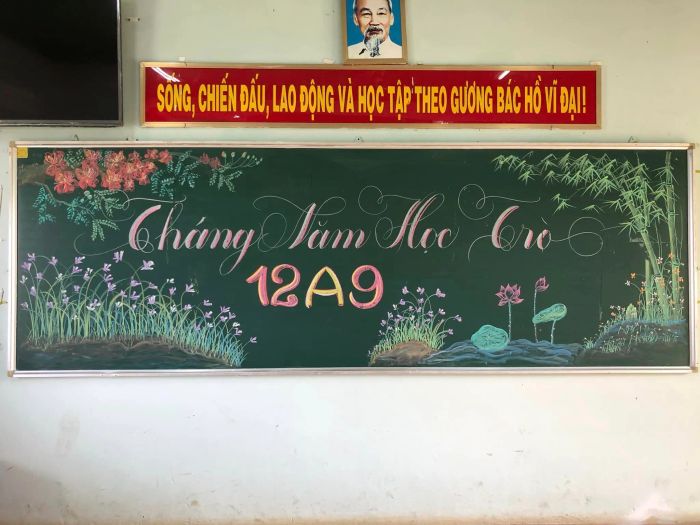 SỐNG, CHIẾN ĐẤU, LAO ĐỘNG VÀ HỌC TẬP THEO GƯƠNG BÁC HỒ VĨ ĐẠI!
Tháng Năm Học Trò
12A9